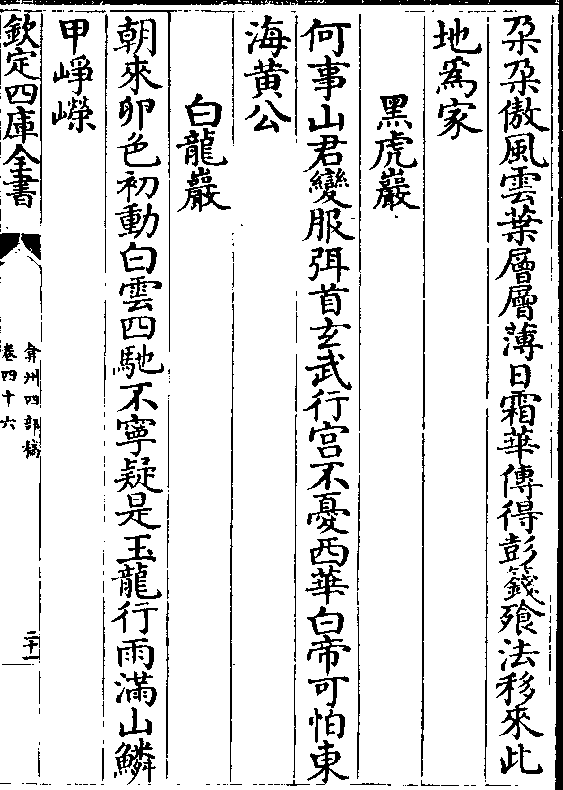 朶朶傲風雲葉層層薄日霜華傳得彭籛飱法移來此
地爲家
黑虎巖
何事山君變服弭首玄武行宫不憂西華白帝可怕東
海黄公
白龍巖
朝來卯色初動白雲四馳不寧疑是玉龍行雨滿山鱗
甲崢嶸
欽定四庫全書
弇州四部稿
卷四十六
二十一